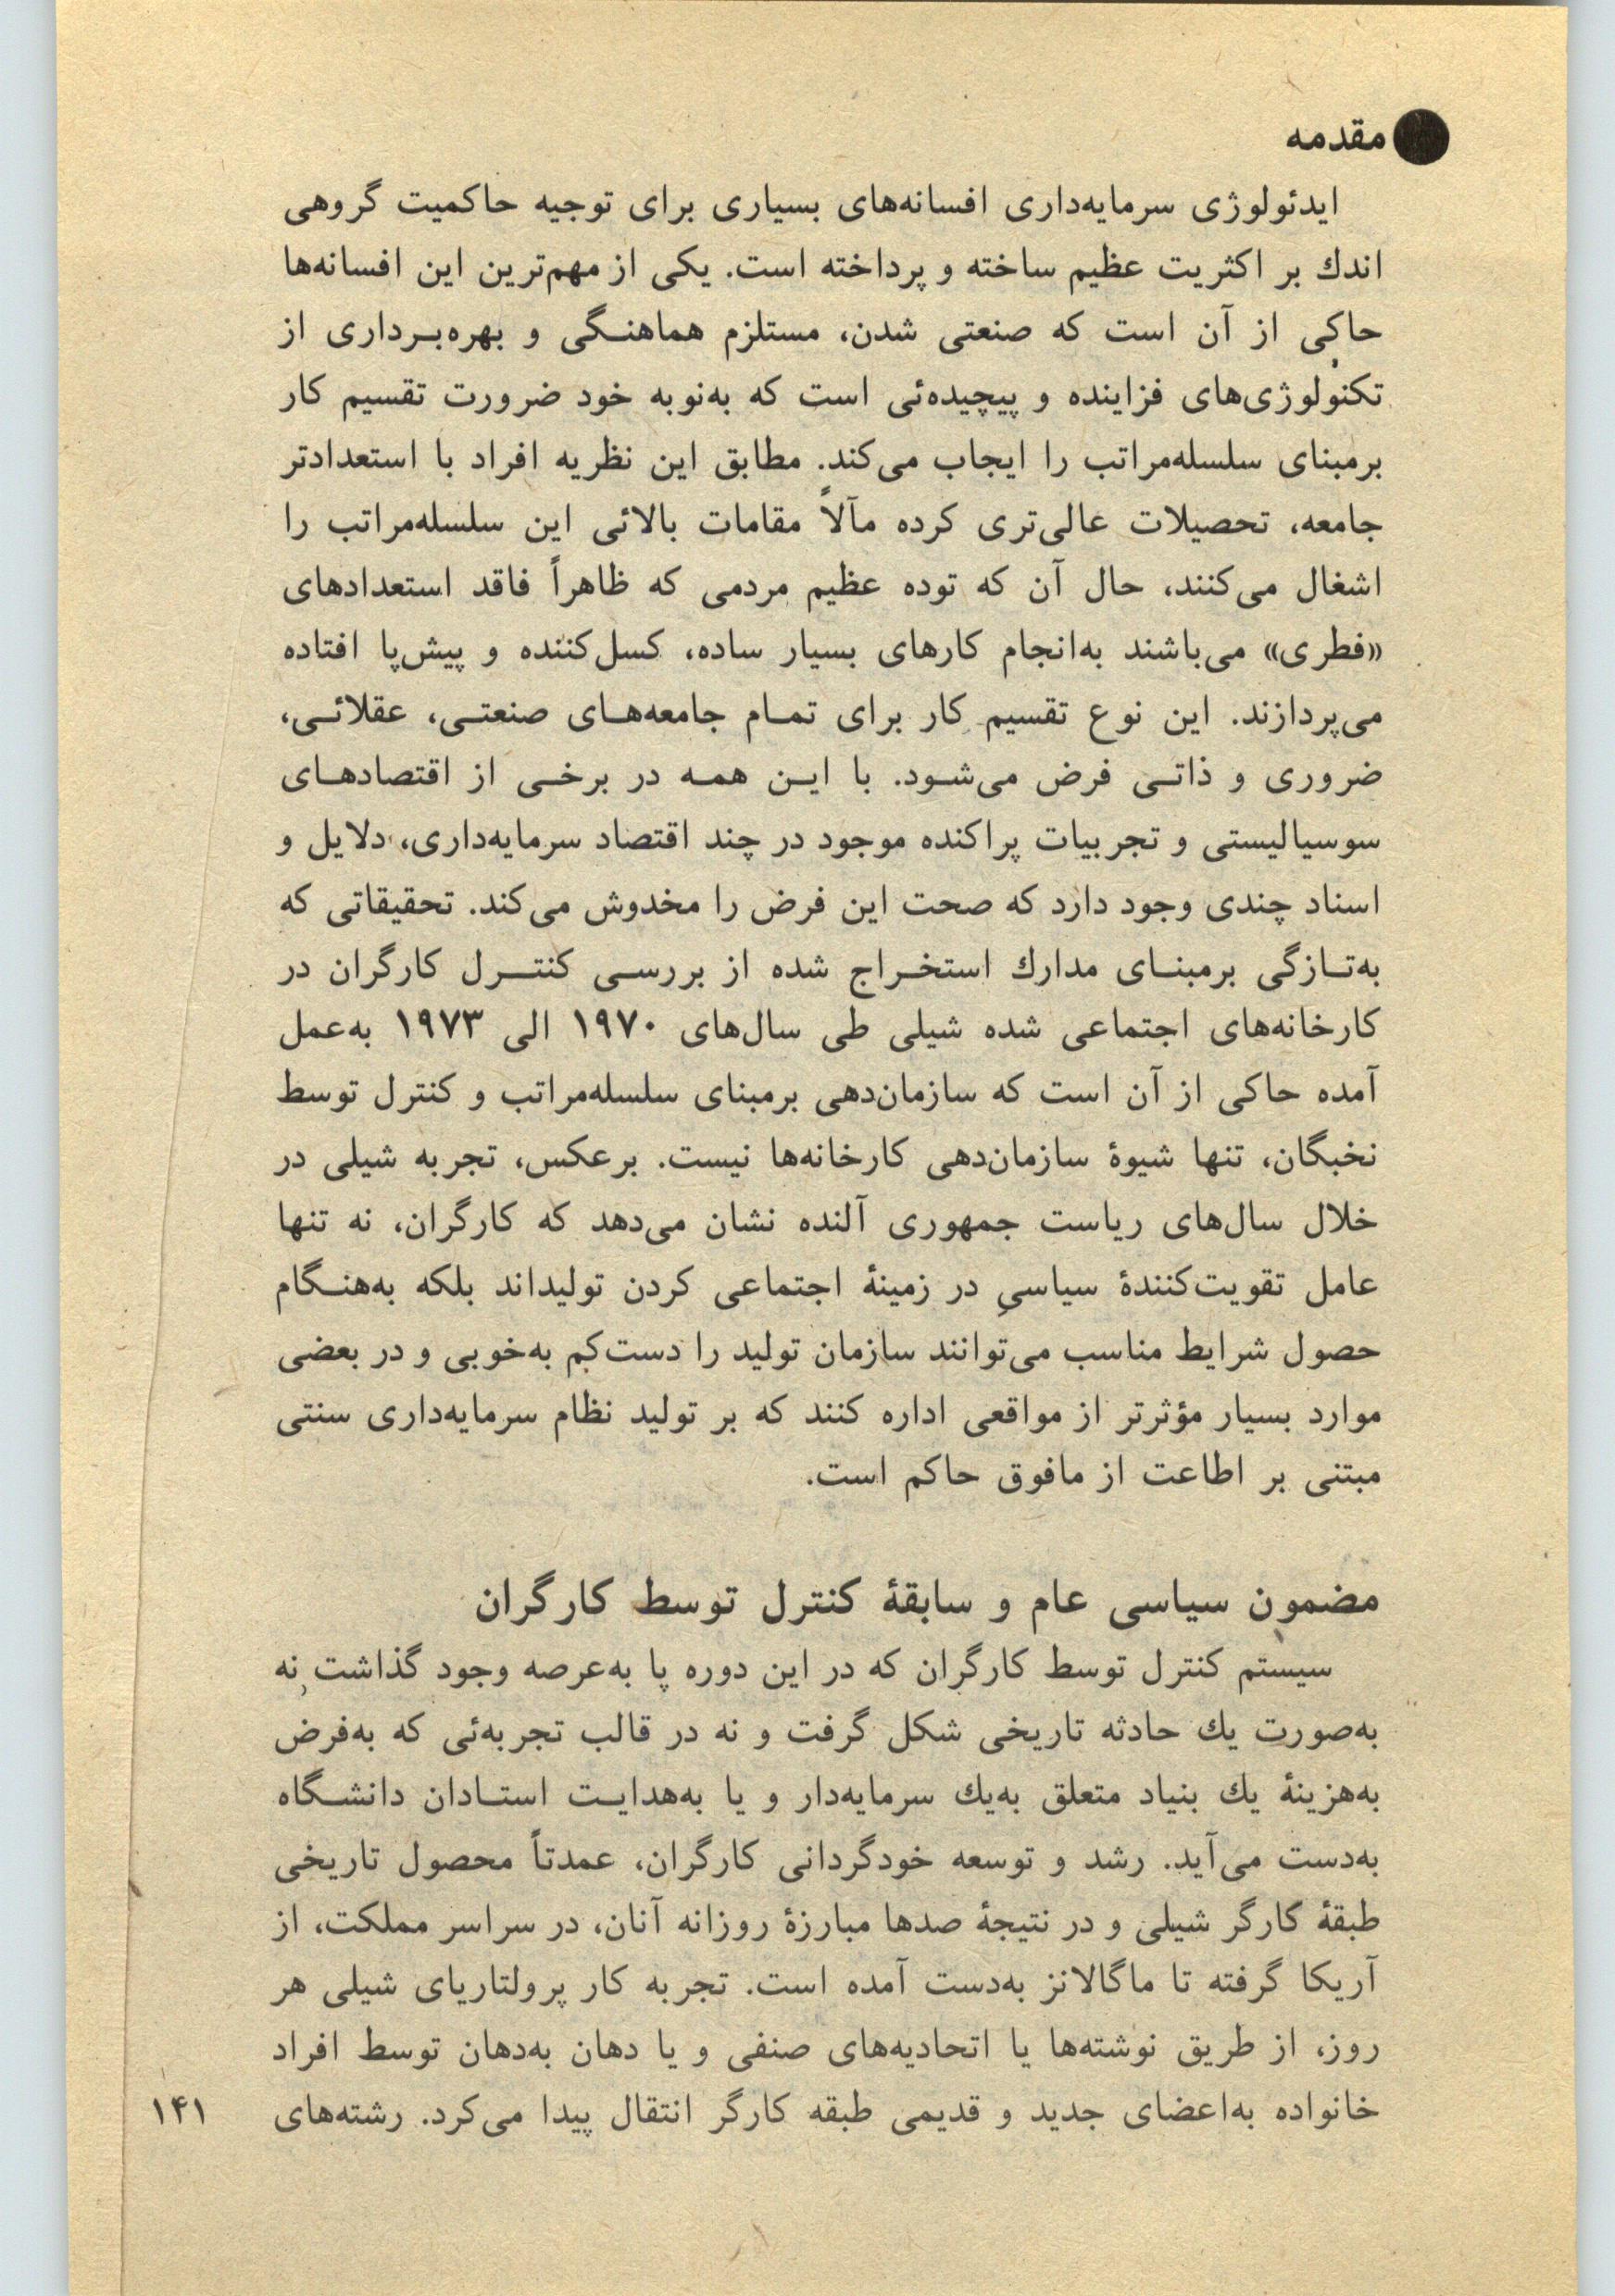 مقدمه
ایدئولوژی سرمایه‌داری افسانه‌های بسیاری برای توجیه حاکمیت گروهی
اندك بر اکثریت عظیم ساخته و پرداخته است. یکی از مهم‌ترین این افسانه‌ها
حاکی از آن است که صنعتی شدن، مستلزم هماهنگی و بهره‌برداری از
تکنولوژی‌های فزاینده و پیچیده‌ئی است که به‌نوبه خود ضرورت تقسیم کار
برمبنای سلسله‌مراتب را ایجاب می‌کند. مطابق این نظریه افراد با استعدادتر
جامعه، تحصیلات عالی‌تری کرده مآلاً مقامات بالائی این سلسله‌مراتب را
اشغال می‌کنند، حال آن که توده عظیم مردمی که ظاهراً فاقد استعدادهای
«فطری» می‌باشند به‌انجام کارهای بسیار ساده، کسل‌کننده و پیش‌پا افتاده
می‌پردازند. این نوع تقسیم کار برای تمام جامعه‌های صنعتی، عقلائی،
ضروری و ذاتی فرض می‌شود. با این همه در برخی از اقتصادهای
سوسیالیستی و تجربیات پراکنده موجود در چند اقتصاد سرمایه‌داری، دلایل و
اسناد چندی وجود دارد که صحت این فرض را مخدوش می‌کند. تحقیقاتی که
به‌تازگی برمبنای مدارك استخراج شده از بررسی کنترل کارگران در
کارخانه‌های اجتماعی شده شیلی طی سال‌های ۱۹۷۰ الی ۱۹۷۳ به‌عمل
آمده حاکی از آن است که سازمان‌دهی برمبنای سلسله‌مراتب و کنترل توسط
نخبگان، تنها شیوهٔ سازمان‌دهی کارخانه‌ها نیست. برعکس، تجربه شیلی در
خلال سال‌های ریاست جمهوری آلنده نشان می‌دهد که کارگران، نه تنها
عامل تقویت‌کنندهٔ سیاسیِ در زمینهٔ اجتماعی کردن تولیداند بلکه به‌هنگام
حصول شرایط مناسب می‌توانند سازمان تولید را دست‌کم به‌خوبی و در بعضی
موارد بسیار مؤثرتر از مواقعی اداره کنند که بر تولید نظام سرمایه‌داری سنتی
مبتنی بر اطاعت از مافوق حاکم است.
مضمون سیاسی عام و سابقهٔ کنترل توسط کارگران
سیستم کنترل توسط کارگران که در این دوره پا به‌عرصه وجود گذاشت نه
به‌صورت یك حادثه تاریخی شکل گرفت و نه در قالب تجربه‌ئی که به‌فرض
به‌هزینهٔ یك بنیاد متعلق به‌یك سرمایه‌دار و یا به‌هدایت استادان دانشگاه
به‌دست می‌آید. رشد و توسعه خودگردانی کارگران، عمدتاً محصول تاریخی
طبقهٔ کارگر شیلی و در نتیجهٔ صدها مبارزهٔ روزانه آنان، در سراسر مملکت، از
آریکا گرفته تا ماگالانز به‌دست آمده است. تجربه کار پرولتاریای شیلی هر
روز، از طریق نوشته‌ها یا اتحادیه‌های صنفی و یا دهان به‌دهان توسط افراد
خانواده به‌اعضای جدید و قدیمی طبقه کارگر انتقال پیدا می‌کرد. رشته‌های
۱۴۱